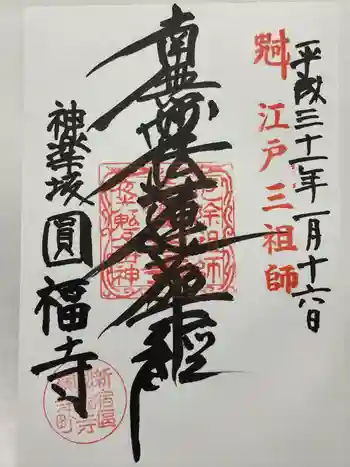 平成三十一年一月十六日
江戸三祖師
南無妙法蓮華経
神楽坂
圓福寺
新宿区